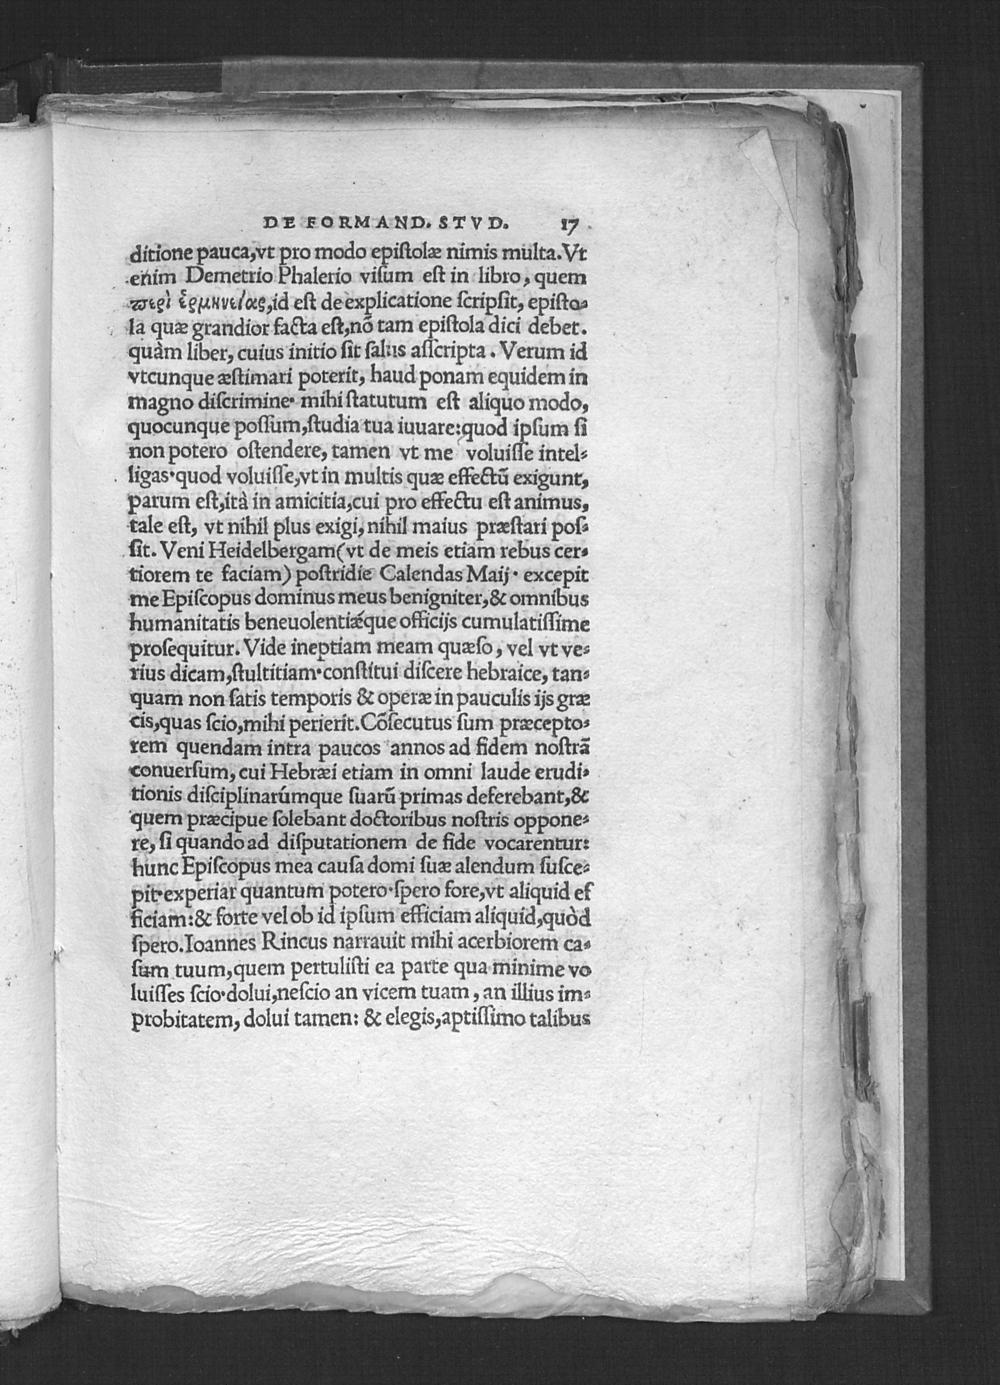 DE FORMAND. STVD. 17
ditione pauca,vt pro modo epiſtolæ nimis multa.Vt
enim Demetrio Phalerio viſum eſt in libro, quem
περὶ ἑρμηνείας,id eſt de explicatione ſcripſit, epiſto-
la quæ grandior facta eſt,nõ tam epiſtola dici debet.
quàm liber, cuius initio ſit ſalus aſſcripta. Verum id
vtcunque æſtimari poterit, haud ponam equidem in
magno diſcrimine· mihi ſtatutum eſt aliquo modo,
quocunque poſſum,ſtudia tua iuuare:quod ipſum ſi
non potero oſtendere, tamen vt me voluiſſe intel-
ligas·quod voluiſſe,vt in multis quæ effectũ exigunt,
parum eſt,ità in amicitia,cui pro effectu eſt animus,
tale eſt, vt nihil plus exigi, nihil maius præſtari poſ-
ſit. Veni Heidelbergam(vt de meis etiam rebus cer-
tiorem te faciam) poſtridie Calendas Maij· excepit
me Epiſcopus dominus meus benigniter,& omnibus
humanitatis beneuolentiǽque officijs cumulatiſſime
proſequitur. Vide ineptiam meam quæſo, vel vt ve-
rius dicam,ſtultitiam·conſtitui diſcere hebraice, tan-
quam non ſatis temporis & operæ in pauculis ijs græ
cis,quas ſcio,mihi perierit.Cõſecutus ſum præcepto-
rem quendam intra paucos annos ad fidem noſtrã
conuerſum, cui Hebræi etiam in omni laude erudi-
tionis diſciplinarúmque ſuarũ primas deferebant,&
quem præcipue ſolebant doctoribus noſtris oppone-
re, ſi quando ad diſputationem de fide vocarentur:
hunc Epiſcopus mea cauſa domi ſuæ alendum ſuſce-
pit·experiar quantum potero·ſpero fore,vt aliquid ef
ficiam:& forte vel ob id ipſum efficiam aliquid,quòd
ſpero.Ioannes Rincus narrauit mihi acerbiorem ca-
ſum tuum,quem pertuliſti ea parte qua minime vo
luiſſes ſcio·dolui,neſcio an vicem tuam, an illius im-
probitatem, dolui tamen: & elegis,aptiſſimo talibus